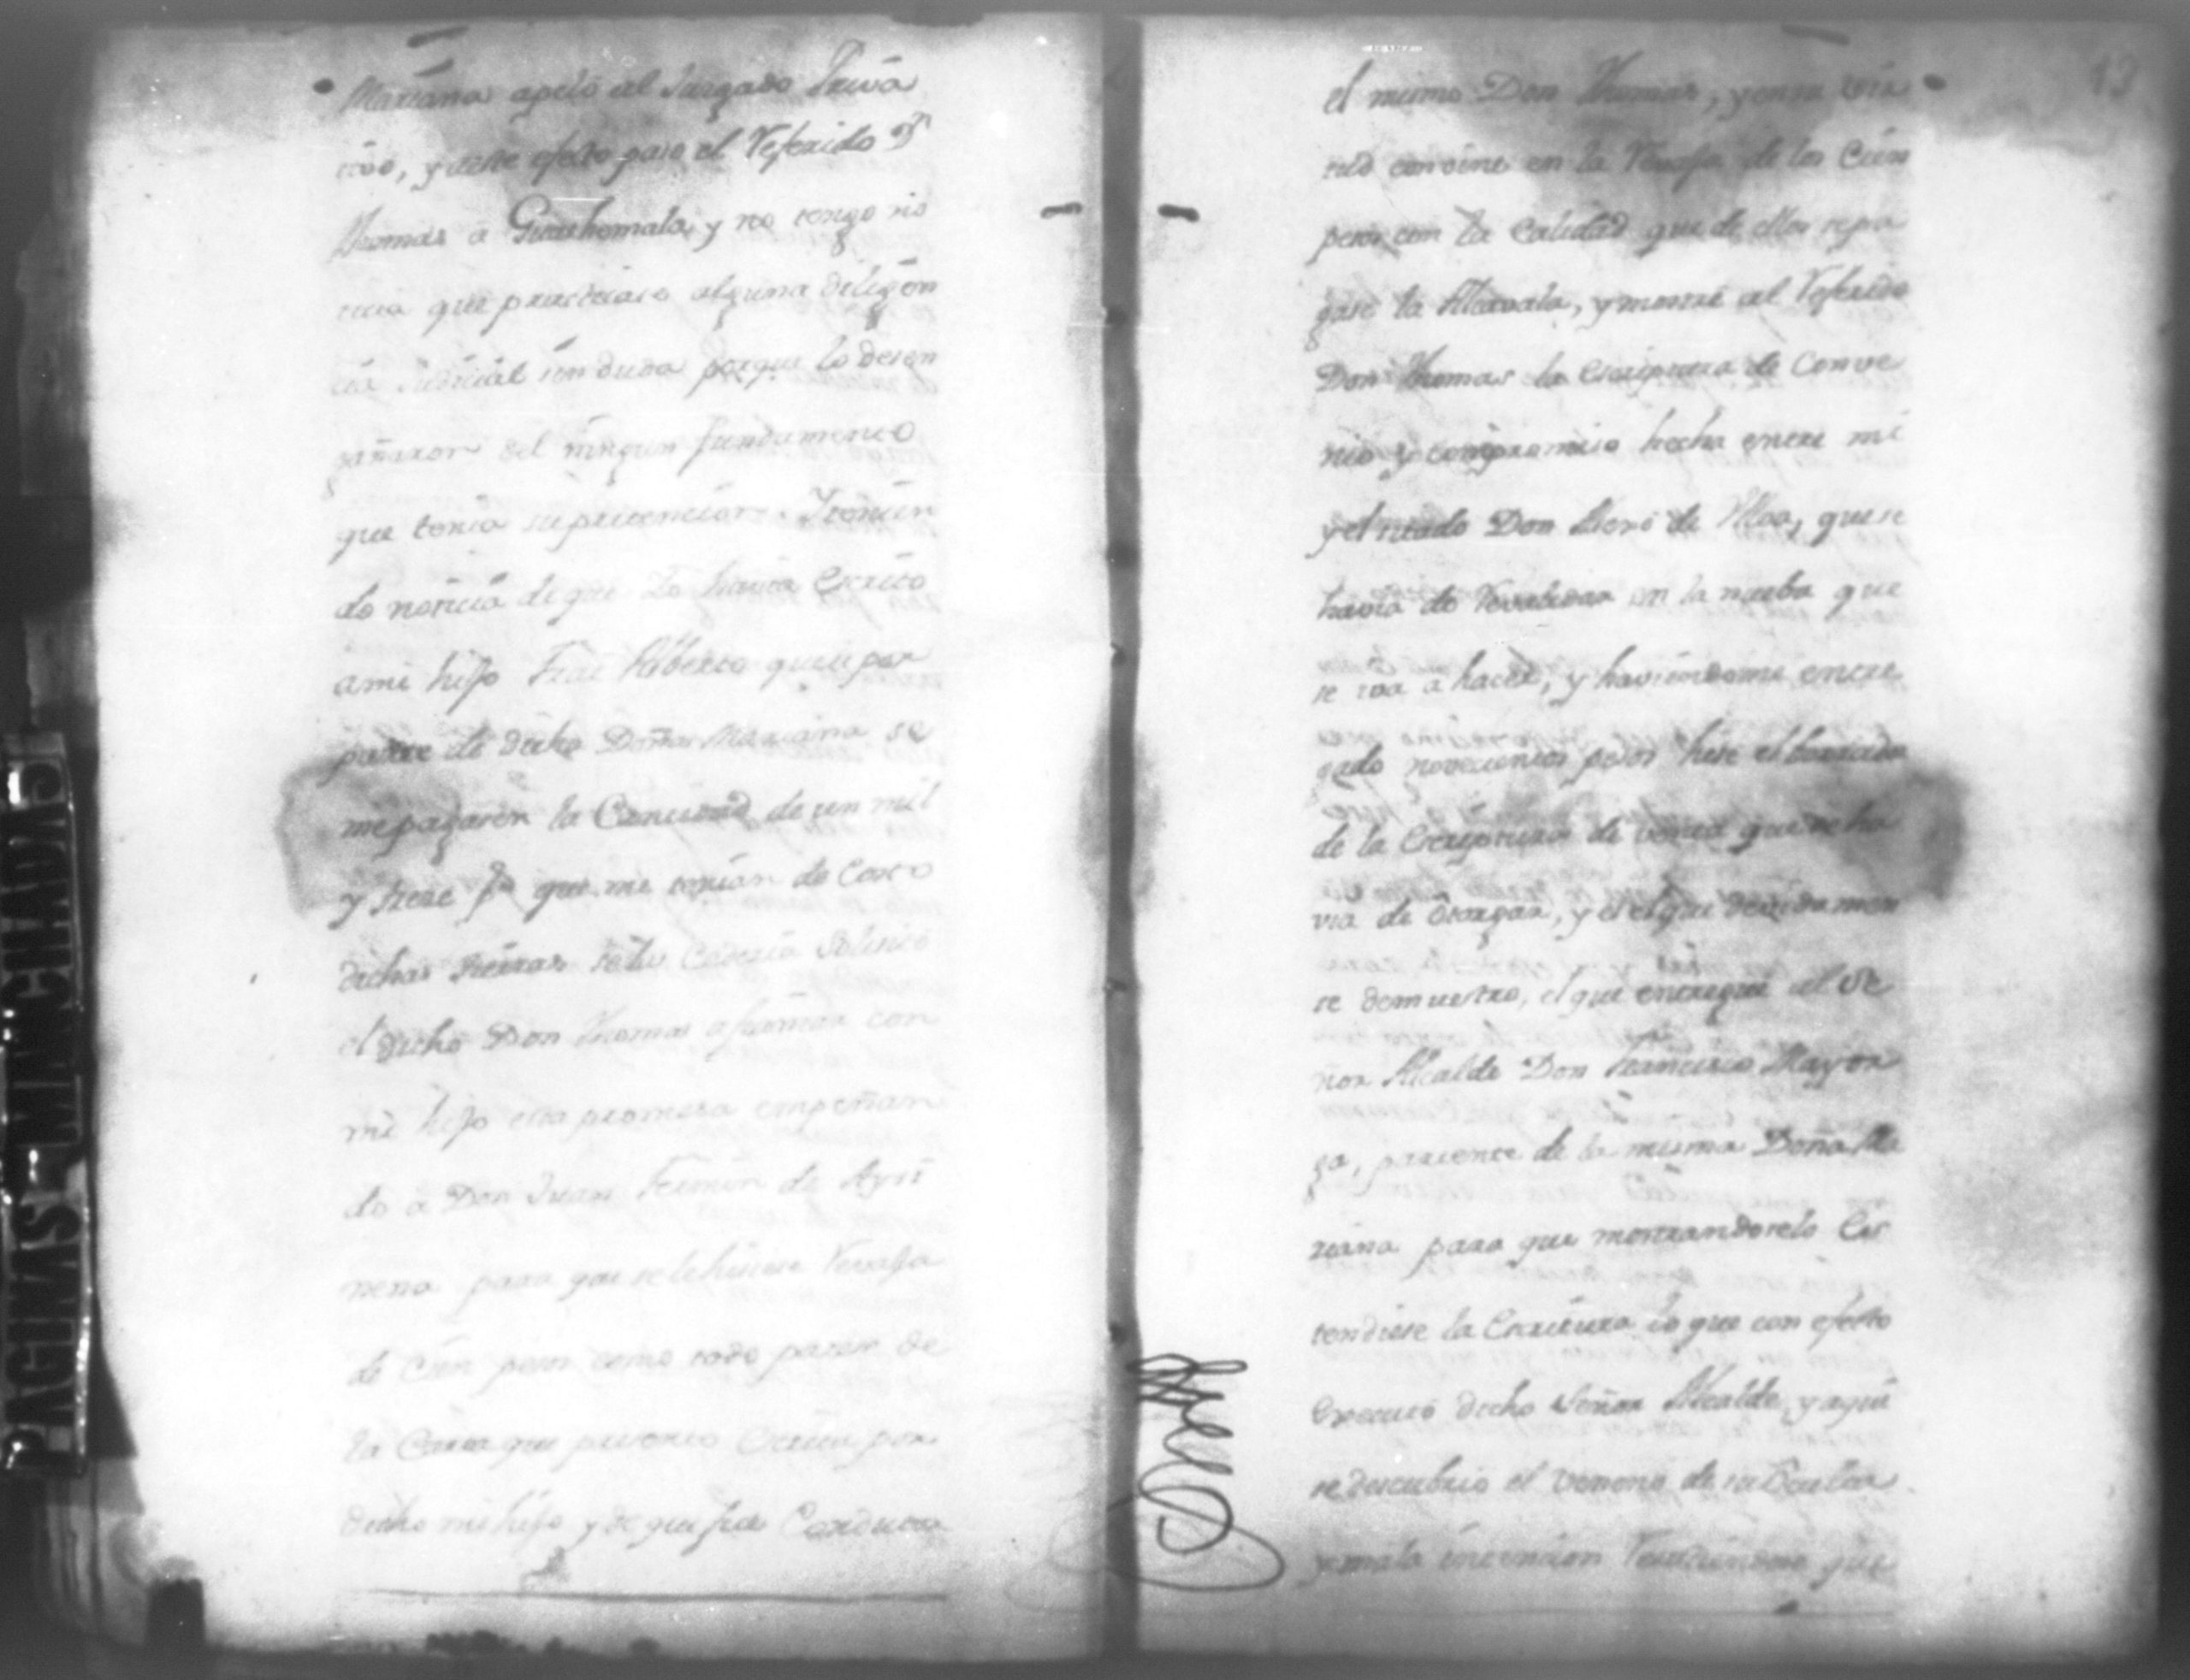 Mariana apeló al Juzgado Priva
tivo, y a este efecto paso el Referido Dn
Thomas a Guathemala, y no tengo no
ticia que practicase alguna diligen
cia Judicial sin duda porque lo desen
gañaron del ningun fundamento
que tenia su pretencion. Tenien
do noticia de que Io havia escrito
a mi hijo Frai Alberto que si por
parte de dicha Doña Mariana se
me pagaren la Cantidad de un mil
y trese ps que me tenian de Costo
dichas tierras se las Cederia Solicito
el dicho Don Thomas afianzar con
mi hijo esta promesa empeñan
do a Don Juan Fermin de Ayci
nena para que se le hisiese Revaja
de Cien pesos como todo parese de
la Carta que presento Escrita por
dicho mi hijo y de que fue Conductor
13
el mismo Don Thomas, y en su vir
tud convine en la Revaja de los Cien
pesos con la Calidad que de ellos se pa
gase la Alcavala, y mostré al Referido
Don Thomas la Escriptura de Conve
nio y compromiso hecha entre mi
y el citado Don de Ulloa, que se
havia de en la nueba que
se iva a hacer, y haviendome entre
gado novecientos pesos hise el borrador
de la Escriptura de venta que se ha
via de Otorgar, y es el que devidamen
te demuestro, el que entregué al Se
ñor Alcalde Don Francisco Mayor
ga, pariente de la misma Doña Ma
riana para que mostrandoselo Es
tendiese la Escritura lo que con efecto
Executó dicho Señor Alcalde, y aqui
se descubrio el veneno de su Oculta
y mala intencion que
PAGINAS MANCHADAS